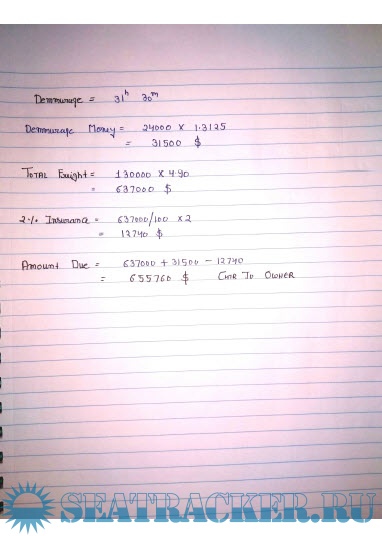 Demmurage = 31h 30m
Demmurage Money = 24000 X 1.3125
= 31500 $
TOTAL Freight = 130000 X 4.90
= 637000 $
2% Insurance = 637000/100 X 2
= 12740 $
Amount Due = 637000 + 31500 - 12740
= 655760 $ CHTR TO OWNER
SEATRACKER.RU